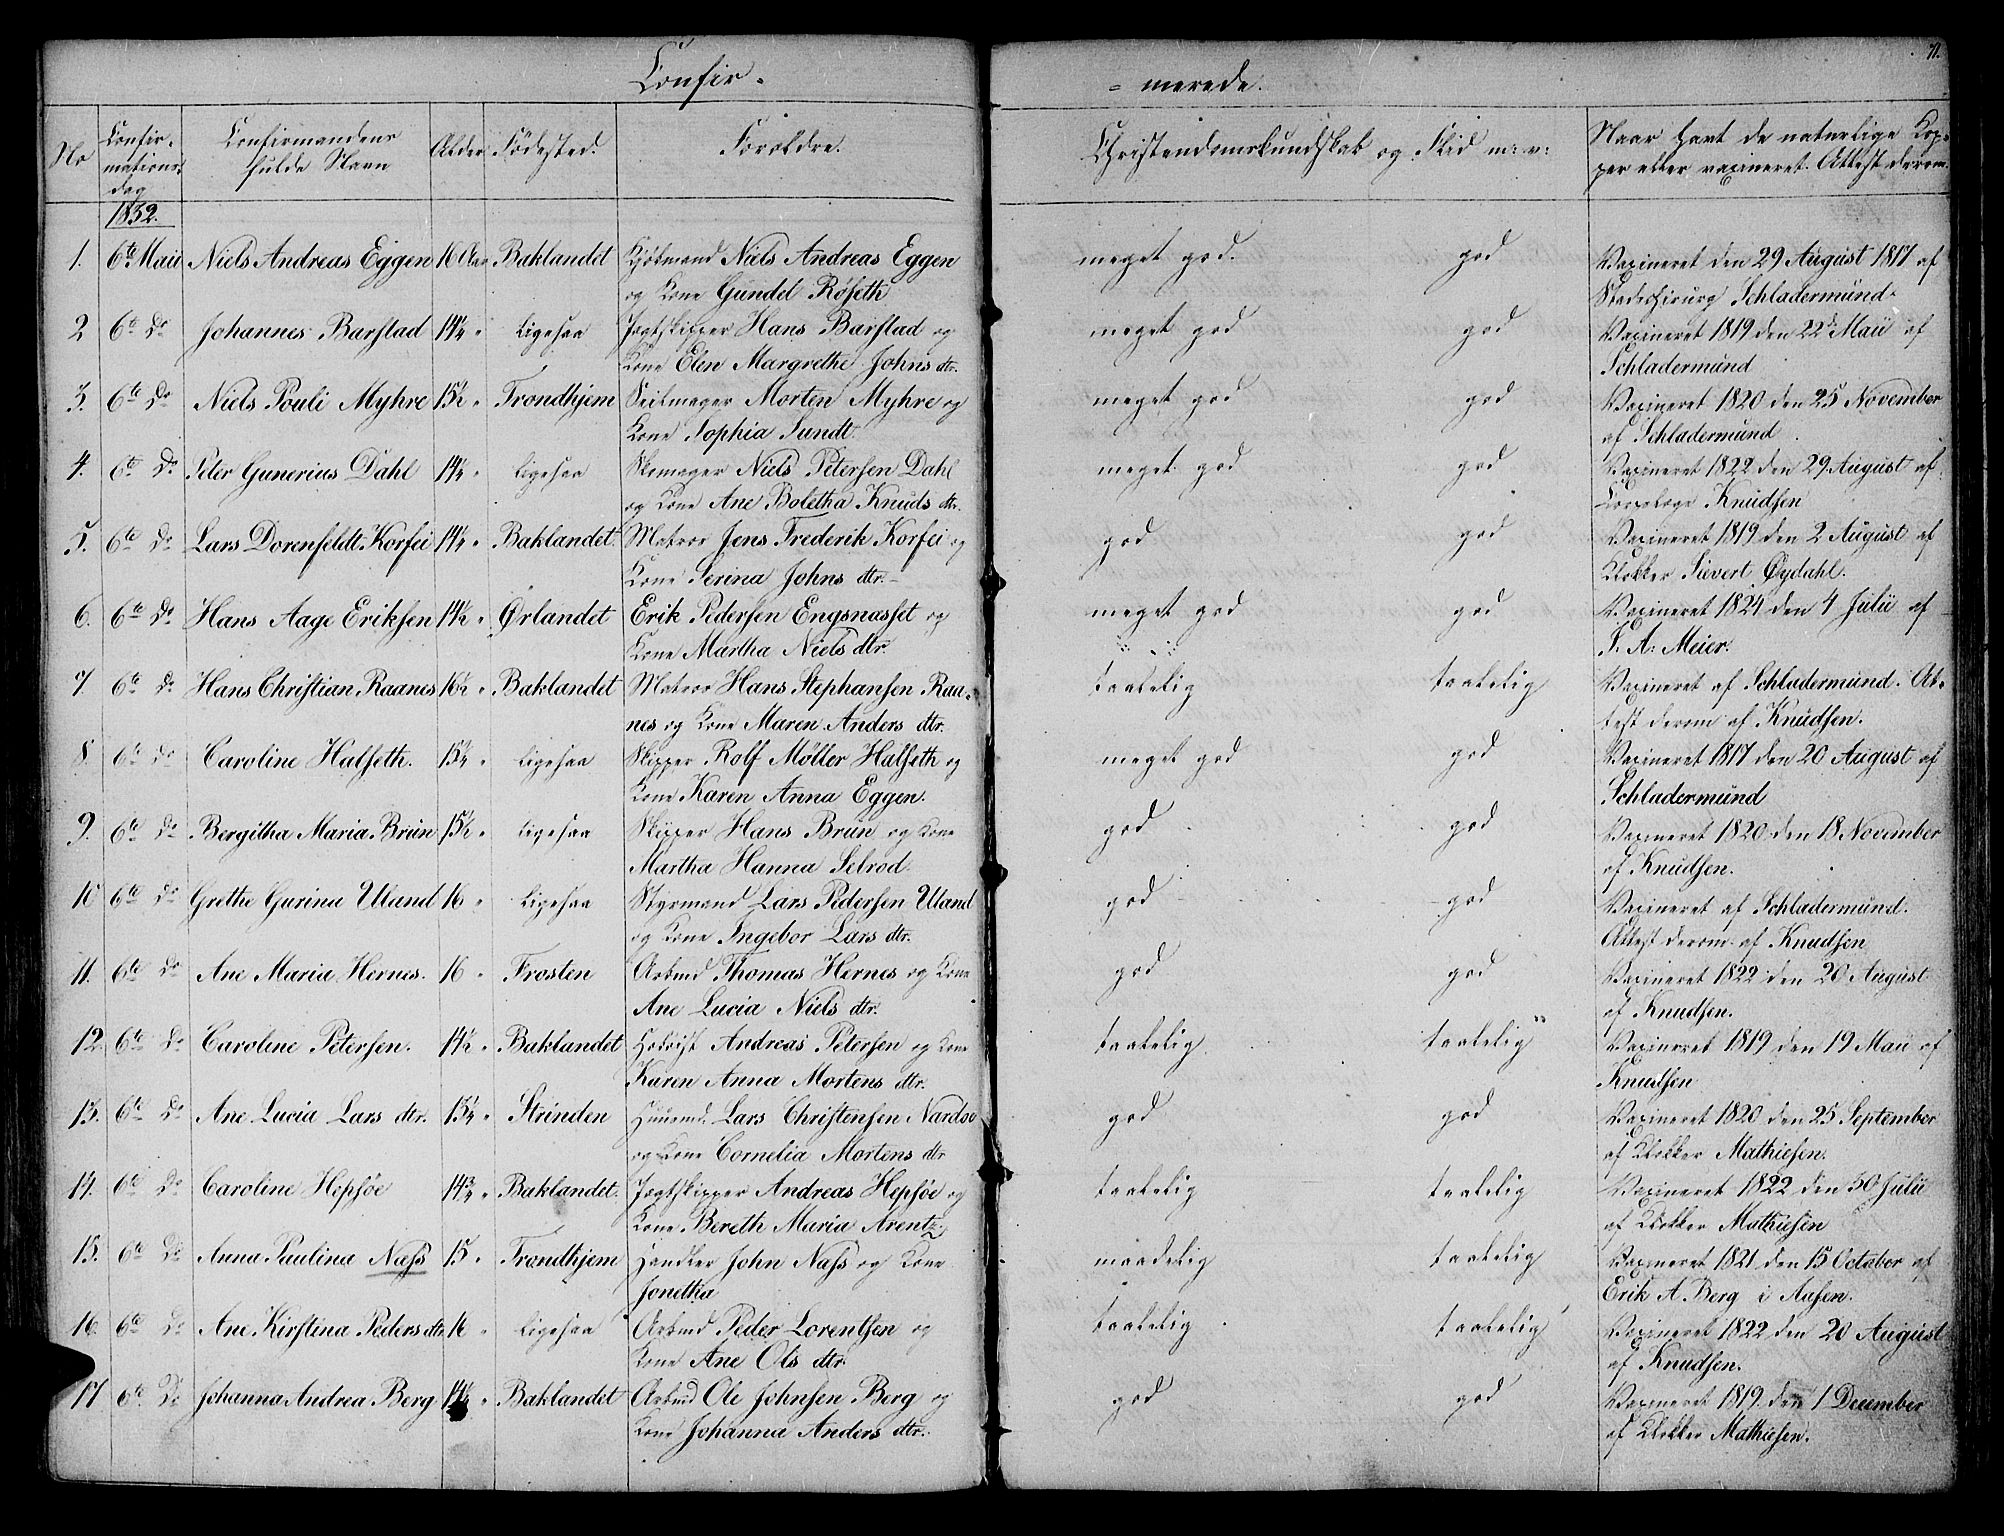 71.
Confir-
-merede.
No
Confir-
mations-
dag
Confirmandens
fulde Navn
Alder
Födested.
Forældre.
Christendomskundskab og Flid m: v:
Naar havt de naturlige Kop-
per eller vaxineret. Attest derom.
1832.
1. 6te Maii Niels Andreas Eggen 16 Aar Baklandet Kjöbmand Niels Andreas Eggen meget god. god Vaxineret den 29 August 1817 af
og Kone Gundel Røseth Stadschirurg Schladermund.
2 6te Do Johannes Barstad 14¼ " ligesaa Jagtskipper Hans Barstad og meget god god Vaxineret 1819 den 22de Maii af
Kone Elen Margrethe Johns dtr. Schladermund
3. 6te Do Niels Pouli Myhre 15½ " Trondhjem Seilmager Morten Myhre og meget god god Vaxineret 1820 den 25 November
Kone Sophia Sundt. af Schladermund
4. 6te Do Peter Gunerius Dahl 14¼ " ligesaa Skomager Niels Petersen Dahl meget god god Vaxineret 1822 den 29 August af
og Kone Ane Boletha Knuds dtr. Corpslæge Knudsen
5. 6te Do Lars Dorenfeldt Korfei 14¼ " Baklandet. Matros Jens Frederik Korfei og god god Vaxineret 1819 den 2 August af
Kone Serina Johns dtr. Klokker Sievert Øydahl.
6. 6te Do Hans Aage Eriksen 14½ " Ørlandet Erik Pedersen Engsnasset og meget god god Vaxineret 1824 den 4 Julii af
Kone Martha Niels dtr. F. A: Meier.
7. 6te Do Hans Christian Raanes 16½ " Baklandet Matros Hans Stephansen Raa- taalelig taalelig Vaxineret af Schladermund. At-
nes og Kone Maren Anders dtr. test derom af Knudsen.
8. 6te Do Caroline Halseth. 15¼ " ligesaa Skipper Rolf Møller Halseth og meget god god Vaxineret 1817 den 20 August af
Kone Karen Anna Eggen. Schladermund
9. 6te Do Bergitha Maria Brun 15½ " ligesaa Skipper Hans Brun og Kone god god Vaxineret 1820 den 18 November
Martha Hanna Selrod. af Knudsen.
10 6te Do Grethe Gurina Uland 16 " ligesaa Styrmand Lars Pedersen Uland god god Vaxineret af Schladermund.
og Kone Ingebor Lars dtr. Attest derom af Knudsen
11. 6te Do Ane Maria Hernes. 16 " Frosten Arbmd Thomas Hernes og Kone god god Vaxineret 1822 den 20 August
Ane Lucia Niels dtr. af Knudsen.
12. 6te Do Caroline Petersen. 14½ " Baklandet Andreas Petersen og Kone taalelig taalelig Vaxineret 1819 den 19 Maii af
Karen Anna Mortens dtr. Knudsen
13. 6te Do Ane Lucia Lars dtr. 15¼ " Strinden Huusmd. Lars Christensen Nardoe god god Vaxineret 1820 den 25 September
og Kone Cornelia Mortens dtr af Klokker Mathiesen.
14. 6te Do Caroline Hepsöe 14¾ " Baklandet. Jagtskipper Andreas Hepsöe og taalelig taalelig Vaxineret 1822 den 30 Julii
Kone Bereth Maria Arentz. af Klokker Mathiesen
15. 6te Do Anna Paulina Næss 15 " Trondhjem Handler John Næss og Kone maadelig taalelig Vaxineret 1821 den 15 October af
Jonetha Erik A. Berg i Aasen.
16. 6te Do Ane Kirstina Peders dtr 16 " ligesaa Arbmd Peder Lorentsen og taalelig taalelig Vaxineret 1822 den 20 August
Kone Ane Ols dtr. af Knudsen.
17 6te Do Johanna Andrea Berg 14½ " Baklandet Arbmd Ole Johnsen Berg og god god Vaxineret 1819 den 1 December
Kone Johanna Anders dtr. af Klokker Mathiesen.